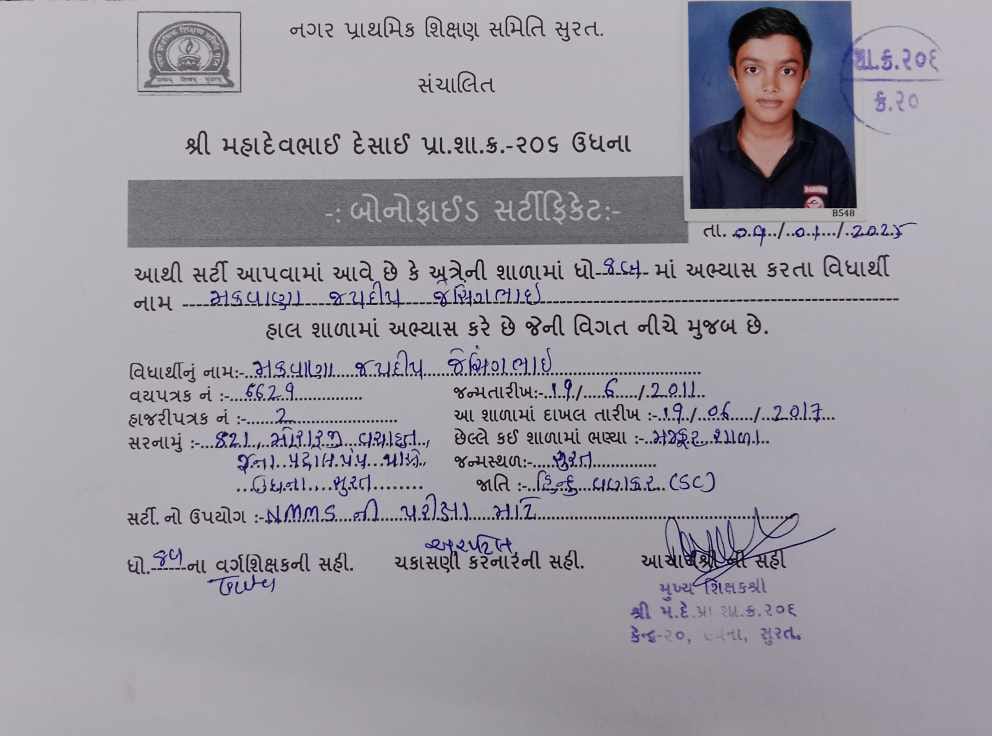 નગર પ્રાથમિક શિક્ષણ સમિતિ સુરત.
સંચાલિત
શા.ક્ર.૨૦૬
ક્ર.૨૦
શ્રી મહાદેવભાઈ દેસાઈ પ્રા.શા.ક્ર.-૨૦૬ ઉધના
-: બોનોફાઈડ સર્ટીફિકેટ:-
8548
તા. ૦૧/૦૧/૨૦૨૫
આથી સર્ટી આપવામાં આવે છે કે અત્રેની શાળામાં ધો- માં અભ્યાસ કરતા વિધાર્થી
નામ મકવાણા જયદીપ જેસિંગભાઈ
હાલ શાળામાં અભ્યાસ કરે છે જેની વિગત નીચે મુજબ છે.
વિધાર્થીનું નામ:- મકવાણા જયદીપ જેસિંગભાઈ
વયપત્રક નં :- 6629 જન્મતારીખ:- 19/6/2011
હાજરીપત્રક નં :- 2 આ શાળામાં દાખલ તારીખ :- 19/06/2017
સરનામું :- 821, મોરારજી વસાહત, છેલ્લે કઈ શાળામાં ભણ્યા :- મજકુર શાળા
જુના પેટ્રોલ પંપ પાસે, જન્મસ્થળ:- સુરત
ઉધના, સુરત જાતિ :- હિન્દુ વણકર (SC)
સર્ટી. નો ઉપયોગ :- NMMS ની પરીક્ષા માટે
ધો. ના વર્ગશિક્ષકની સહી. ચકાસણી કરનારની સહી. આચાર્યશ્રી ની સહી
મુખ્ય શિક્ષકશ્રી
શ્રી મ.દે.પ્રા શા.ક્ર.૨૦૬
કેન્દ્ર-૨૦, ઉધના, સુરત.